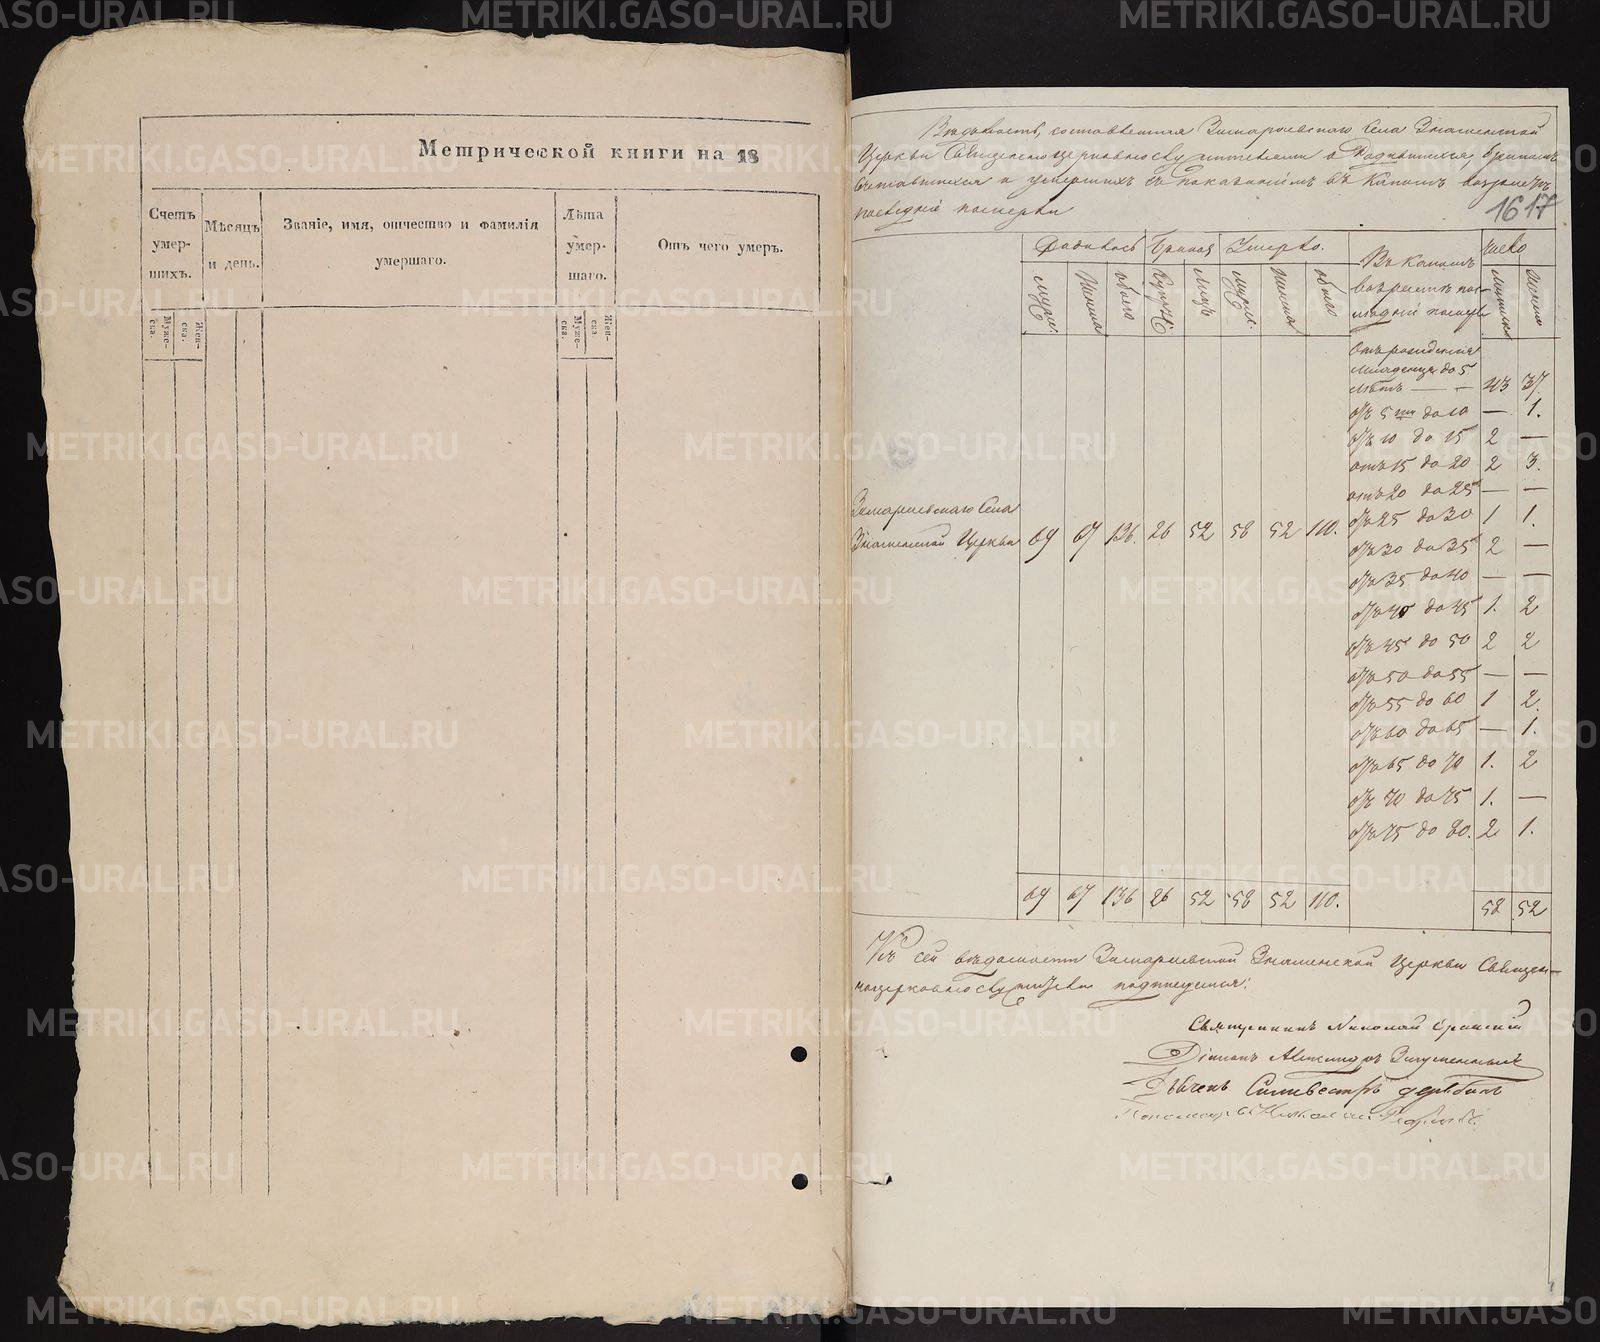 Метрической книги на 18
Счетъ умер- шихъ.
Мѣсяцъ и день.
Званіе, имя, отчество и фамилія умершаго.
Лѣта умер- шаго.
Отъ чего умеръ.
Муже- ска.
Жен- ска.
Муже- ска.
Жен- ска
Вѣдомость, составленная Села Знаменской
Церкви о родившихся, бракомъ
сочетавшихся и умершихъ съ показаніемъ въ какомъ возрастѣ
послѣдніе померли
1617
Родилось Браковъ Умерло.
Въ какомъ возрастѣ пос- лѣдніе померли
число
Женска
обоего
Лицъ
Женска
обоего
Отъ рожденія
младенцевъ до 5
лѣтъ — — 43 37.
отъ 5 ти до 10 — 1.
отъ 10 до 15 2 —
отъ 15 до 20 2 3.
отъ 20 до 25 — —
отъ 25 до 30 1 1.
отъ 30 до 35 2 —
отъ 35 до 40 — —
отъ 40 до 45 1. 2
отъ 45 до 50 2 2
отъ 50 до 55 — —
отъ 55 до 60 1 2.
отъ 60 до 65 — 1.
отъ 65 до 70 1. 2
отъ 70 до 75 1. —
отъ 75 до 80. 2 1.
Села
Знаменской Церкви 69 67 136. 26 52 58 52 110.
69 67 136 26 52 58 52 110.
58 52
Къ сей вѣдомости Знаменской Церкви Священ-
ноцерковнослужители подписуемся:
Священникъ Николай
Діаконъ Александръ
Дьячекъ Силивестръ Дерябинъ
Пономарь Николай
METRIKI.GASO-URAL.RU